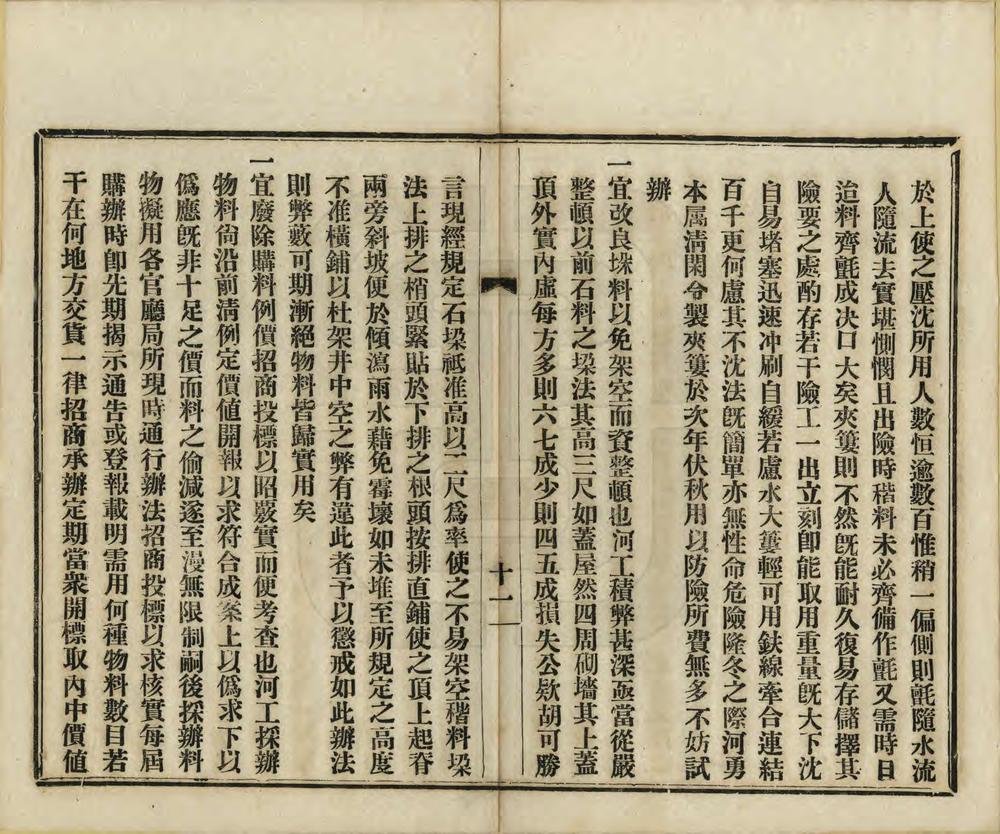 於上使之壓沈所用人數恒逾數百惟稍一偏側則氈隨水流
人隨流去實堪惻憫且出險時稭料未必齊備作氈又需時日
迨料齊氈成决口大矣夾簍則不然旣能耐久復易存儲擇其
險要之處酌存若干險工一出立刻卽能取用重量旣大下沈
自易堵塞迅速冲刷自緩若慮水大簍輕可用鉄線牽合連結
百千更何慮其不沈法旣簡單亦無性命危險隆冬之際河勇
本屬清閑令製夾簍於次年伏秋用以防險所費無多不妨試
辦
一宜改良垜料以免架空而資整頓也河工積弊甚深亟當從嚴
整頓以前石料之垜法其高三尺如蓋屋然四周砌墻其上蓋
頂外實內虛每方多則六七成少則四五成損失公欵胡可勝
十一
言現經規定石垜祗准高以二尺爲率使之不易架空稭料垜
法上排之梢頭緊貼於下排之根頭按排直鋪使之頂上起脊
兩旁斜坡便於傾瀉雨水藉免霉壞如未堆至所規定之高度
不准橫鋪以杜架井中空之弊有違此者予以懲戒如此辦法
則弊藪可期漸絕物料皆歸實用矣
一宜廢除購料例價招商投標以昭覈實而便考查也河工採辦
物料尙沿前清例定價値開報以求符合成案上以僞求下以
僞應旣非十足之價而料之偷減遂至漫無限制嗣後採辦料
物擬用各官廳局所現時通行辦法招商投標以求核實每屆
購辦時卽先期揭示通告或登報載明需用何種物料數目若
干在何地方交貨一律招商承辦定期當衆開標取內中價値